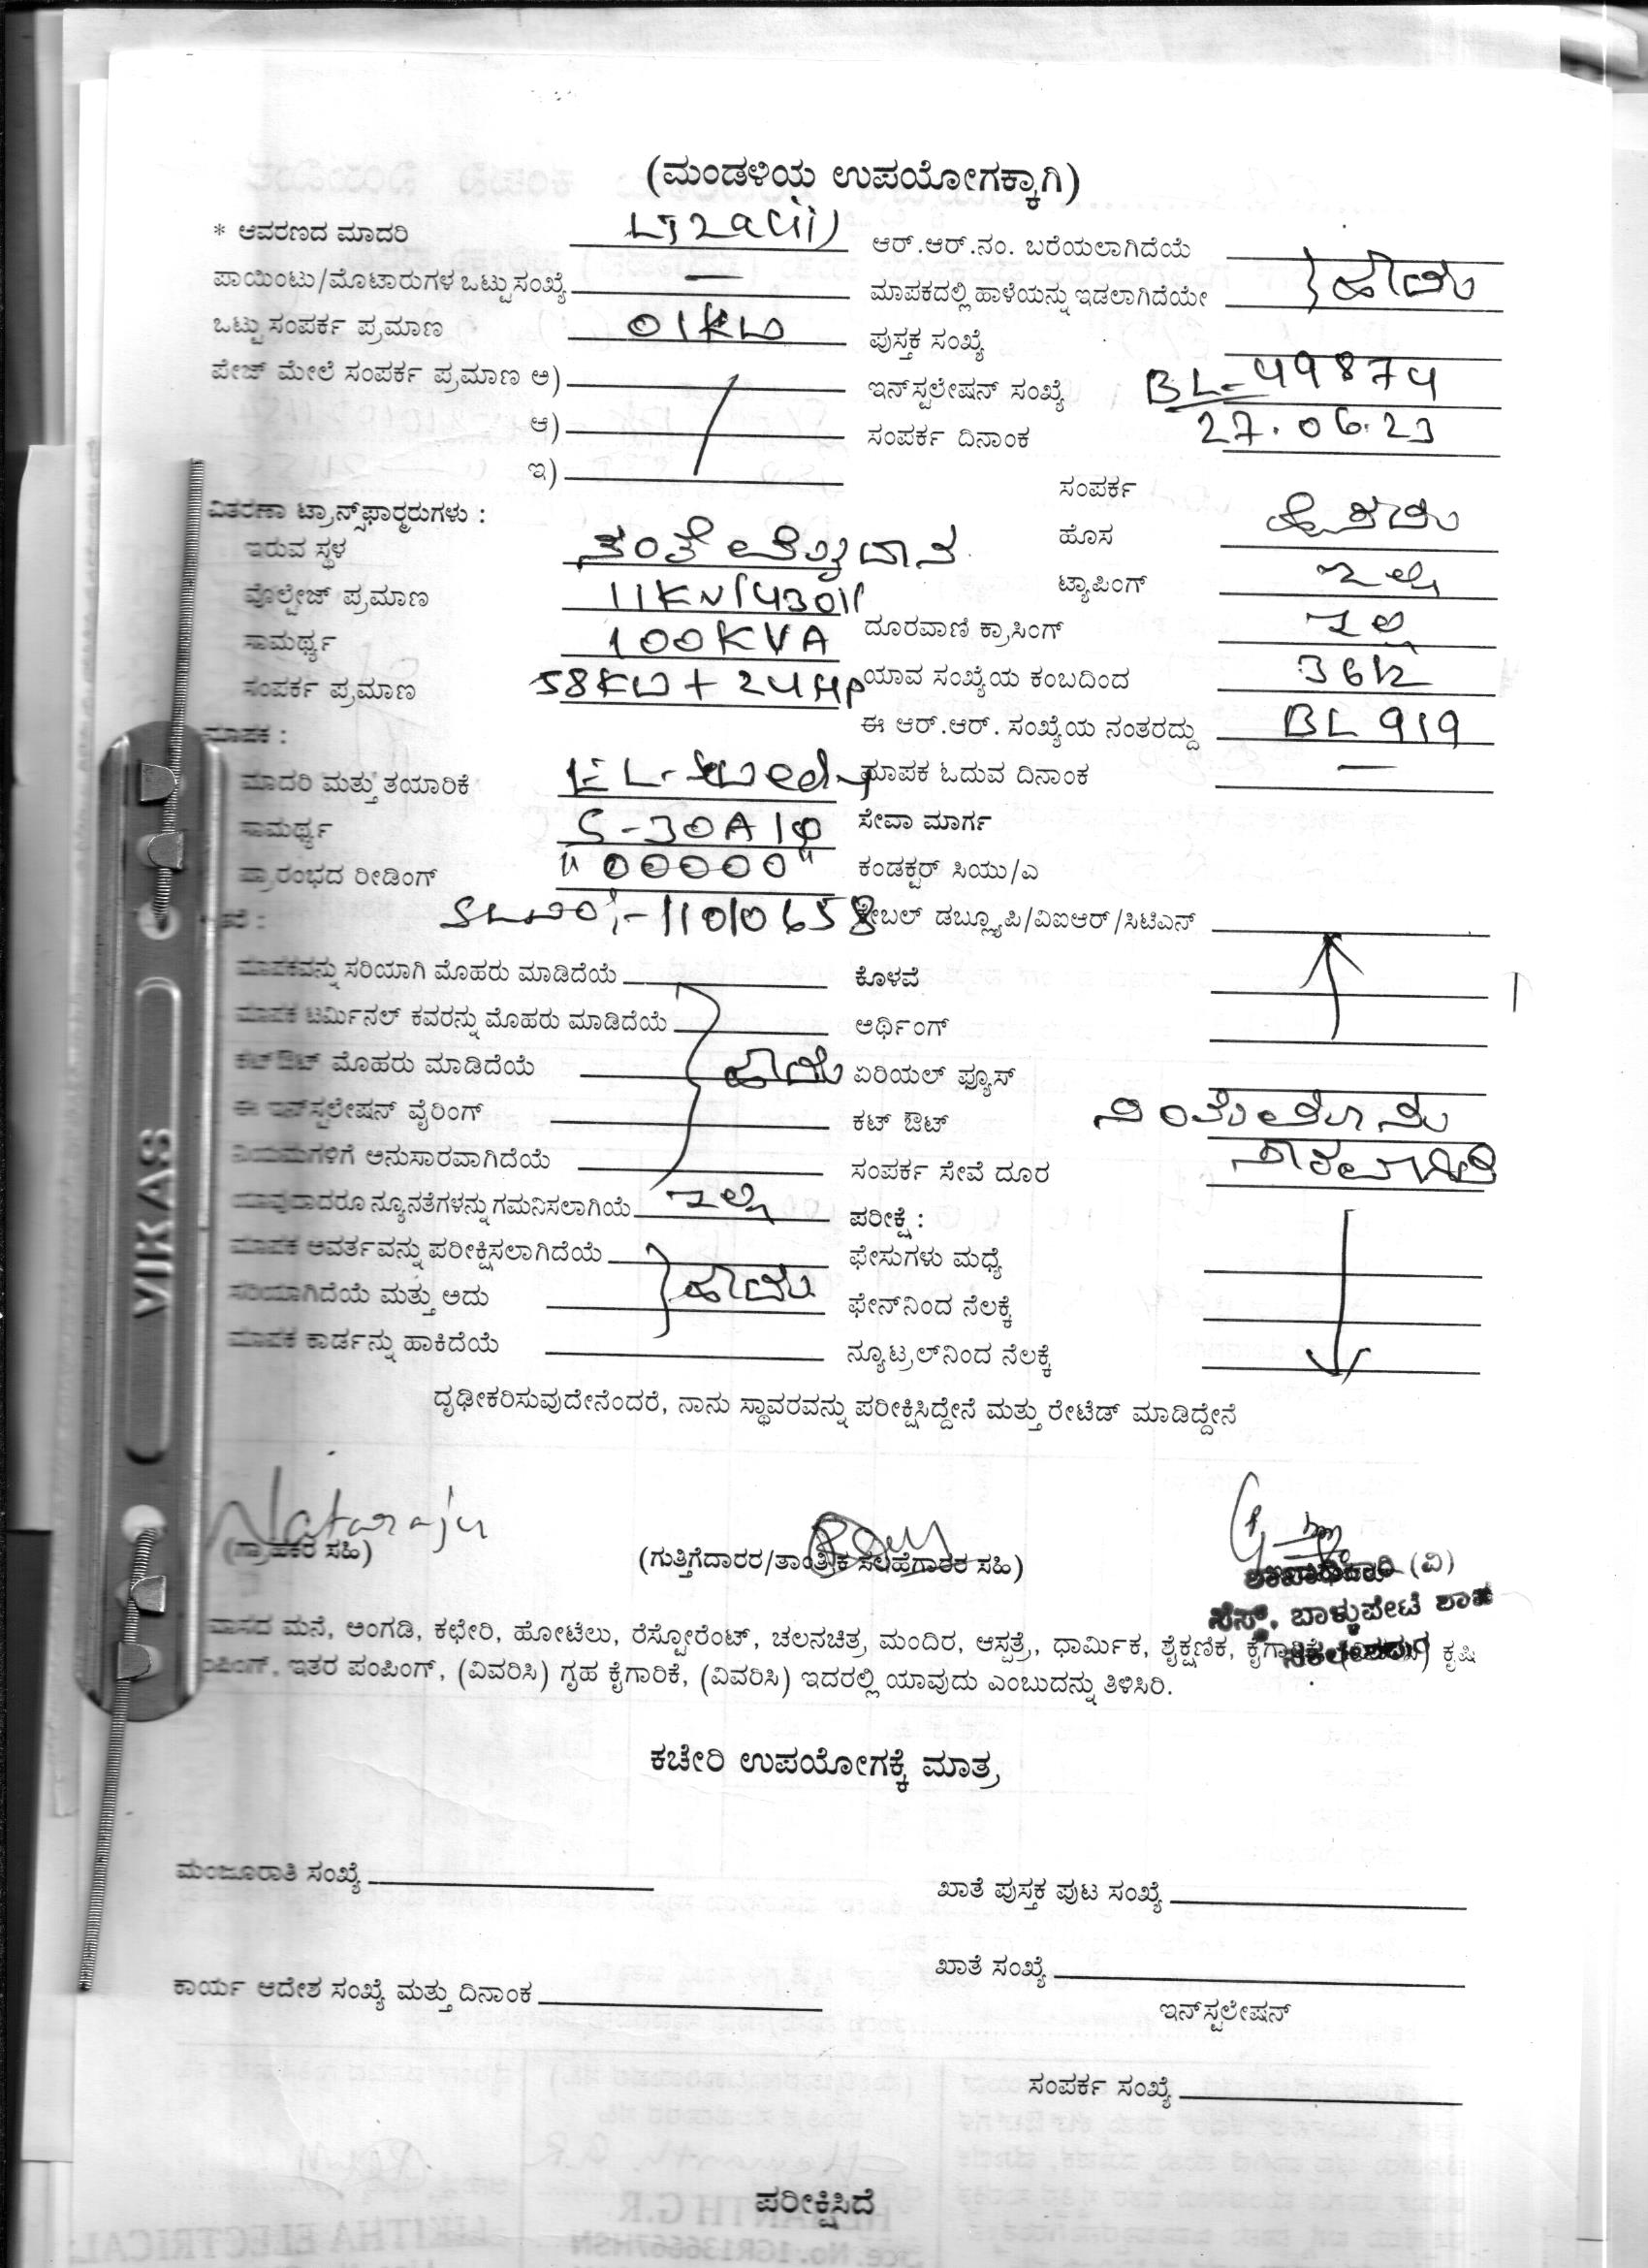 (ಮಂಡಳಿಯ ಉಪಯೋಗಕ್ಕಾಗಿ)
* ಆವರಣದ ಮಾದರಿ
ಆರ್.ಆರ್.ನಂ. ಬರೆಯಲಾಗಿದೆಯೆ
ಪಾಯಿಂಟು/ಮೊಟಾರುಗಳ ಒಟ್ಟು ಸಂಖ್ಯೆ —
ಮಾಪಕದಲ್ಲಿ ಹಾಳೆಯನ್ನು ಇಡಲಾಗಿದೆಯೇ ಹೌದು
ಒಟ್ಟು ಸಂಪರ್ಕ ಪ್ರಮಾಣ 01KW
ಪುಸ್ತಕ ಸಂಖ್ಯೆ
ಪೇಜ್ ಮೇಲೆ ಸಂಪರ್ಕ ಪ್ರಮಾಣ ಅ)
ಇನ್‌ಸ್ಟಲೇಷನ್ ಸಂಖ್ಯೆ BL-49874
ಆ)
ಸಂಪರ್ಕ ದಿನಾಂಕ 27.06.23
ಇ)
ಸಂಪರ್ಕ
ವಿತರಣಾ ಟ್ರಾನ್ಸ್‌ಫಾರ್ಮರುಗಳು :
ಇರುವ ಸ್ಥಳ
ಹೊಸ
ವೊಲ್ಟೇಜ್ ಪ್ರಮಾಣ 11KV/430V
ಟ್ಯಾಪಿಂಗ್ ಇಲ್ಲ
ಸಾಮರ್ಥ್ಯ 100KVA
ದೂರವಾಣಿ ಕ್ರಾಸಿಂಗ್ ಇಲ್ಲ
ಸಂಪರ್ಕ ಪ್ರಮಾಣ 58KW + 24HP
ಯಾವ ಸಂಖ್ಯೆಯ ಕಂಬದಿಂದ
ಈ ಆರ್.ಆರ್. ಸಂಖ್ಯೆಯ ನಂತರದ್ದು BL 919
ಮಾಪಕ :
ಮಾದರಿ ಮತ್ತು ತಯಾರಿಕೆ EL-Swedy
ಮಾಪಕ ಓದುವ ದಿನಾಂಕ —
ಸಾಮರ್ಥ್ಯ 5-30A 1φ
ಸೇವಾ ಮಾರ್ಗ
ಪ್ರಾರಂಭದ ರೀಡಿಂಗ್ "00000"
ಕಂಡಕ್ಟರ್ ಸಿಯು/ಎ
SLNO:-11010658
ಕೇಬಲ್ ಡಬ್ಲ್ಯೂಪಿ/ವಿಐಆರ್/ಸಿಟಿಎಸ್
ಮಾಪಕವನ್ನು ಸರಿಯಾಗಿ ಮೊಹರು ಮಾಡಿದೆಯೆ
ಕೊಳವೆ
ಮಾಪಕ ಟರ್ಮಿನಲ್ ಕವರನ್ನು ಮೊಹರು ಮಾಡಿದೆಯೆ
ಅರ್ಥಿಂಗ್
ಕಟ್‌ಔಟ್ ಮೊಹರು ಮಾಡಿದೆಯೆ ಹೌದು
ಏರಿಯಲ್ ಫ್ಯೂಸ್
ಈ ಇನ್‌ಸ್ಟಲೇಷನ್ ವೈರಿಂಗ್
ಕಟ್ ಔಟ್
ನಿಯಮಗಳಿಗೆ ಅನುಸಾರವಾಗಿದೆಯೆ
ಸಂಪರ್ಕ ಸೇವೆ ದೂರ
ಯಾವುದಾದರೂ ನ್ಯೂನತೆಗಳನ್ನು ಗಮನಿಸಲಾಗಿಯೆ ಇಲ್ಲ
ಪರೀಕ್ಷೆ :
ಮಾಪಕ ಆವರ್ತವನ್ನು ಪರೀಕ್ಷಿಸಲಾಗಿದೆಯೆ
ಫೇಸುಗಳು ಮಧ್ಯೆ
ಸರಿಯಾಗಿದೆಯೆ ಮತ್ತು ಅದು ಹೌದು
ಫೇಸ್‌ನಿಂದ ನೆಲಕ್ಕೆ
ಮಾಪಕ ಕಾರ್ಡನ್ನು ಹಾಕಿದೆಯೆ
ನ್ಯೂಟ್ರಲ್‌ನಿಂದ ನೆಲಕ್ಕೆ
ದೃಢೀಕರಿಸುವುದೇನೆಂದರೆ, ನಾನು ಸ್ಥಾವರವನ್ನು ಪರೀಕ್ಷಿಸಿದ್ದೇನೆ ಮತ್ತು ರೇಟೆಡ್ ಮಾಡಿದ್ದೇನೆ
Nataraju
(ಗ್ರಾಹಕರ ಸಹಿ)
(ಗುತ್ತಿಗೆದಾರರ/ತಾಂತ್ರಿಕ ಸಲಹೆಗಾರರ ಸಹಿ)
ಶಾಖಾಧಿಕಾರಿ (ವಿ)
ಸೆಸ್ಕ್, ಬಾಳ್ಳುಪೇಟೆ ಶಾಖೆ
ಸಕಲೇಶಪುರ
ವಾಸದ ಮನೆ, ಅಂಗಡಿ, ಕಛೇರಿ, ಹೋಟೆಲು, ರೆಸ್ಟೋರೆಂಟ್, ಚಲನಚಿತ್ರ ಮಂದಿರ, ಆಸ್ಪತ್ರೆ, ಧಾರ್ಮಿಕ, ಶೈಕ್ಷಣಿಕ, ಕೈಗಾರಿಕೆ, ಕೃಷಿ
ಪಂಪಿಂಗ್, ಇತರ ಪಂಪಿಂಗ್, (ವಿವರಿಸಿ) ಗೃಹ ಕೈಗಾರಿಕೆ, (ವಿವರಿಸಿ) ಇದರಲ್ಲಿ ಯಾವುದು ಎಂಬುದನ್ನು ತಿಳಿಸಿರಿ.
ಕಚೇರಿ ಉಪಯೋಗಕ್ಕೆ ಮಾತ್ರ
ಮಂಜೂರಾತಿ ಸಂಖ್ಯೆ
ಖಾತೆ ಪುಸ್ತಕ ಪುಟ ಸಂಖ್ಯೆ
ಖಾತೆ ಸಂಖ್ಯೆ
ಕಾರ್ಯ ಆದೇಶ ಸಂಖ್ಯೆ ಮತ್ತು ದಿನಾಂಕ
ಇನ್‌ಸ್ಟಲೇಷನ್
ಸಂಪರ್ಕ ಸಂಖ್ಯೆ
ಪರೀಕ್ಷಿಸಿದೆ
VIKAS